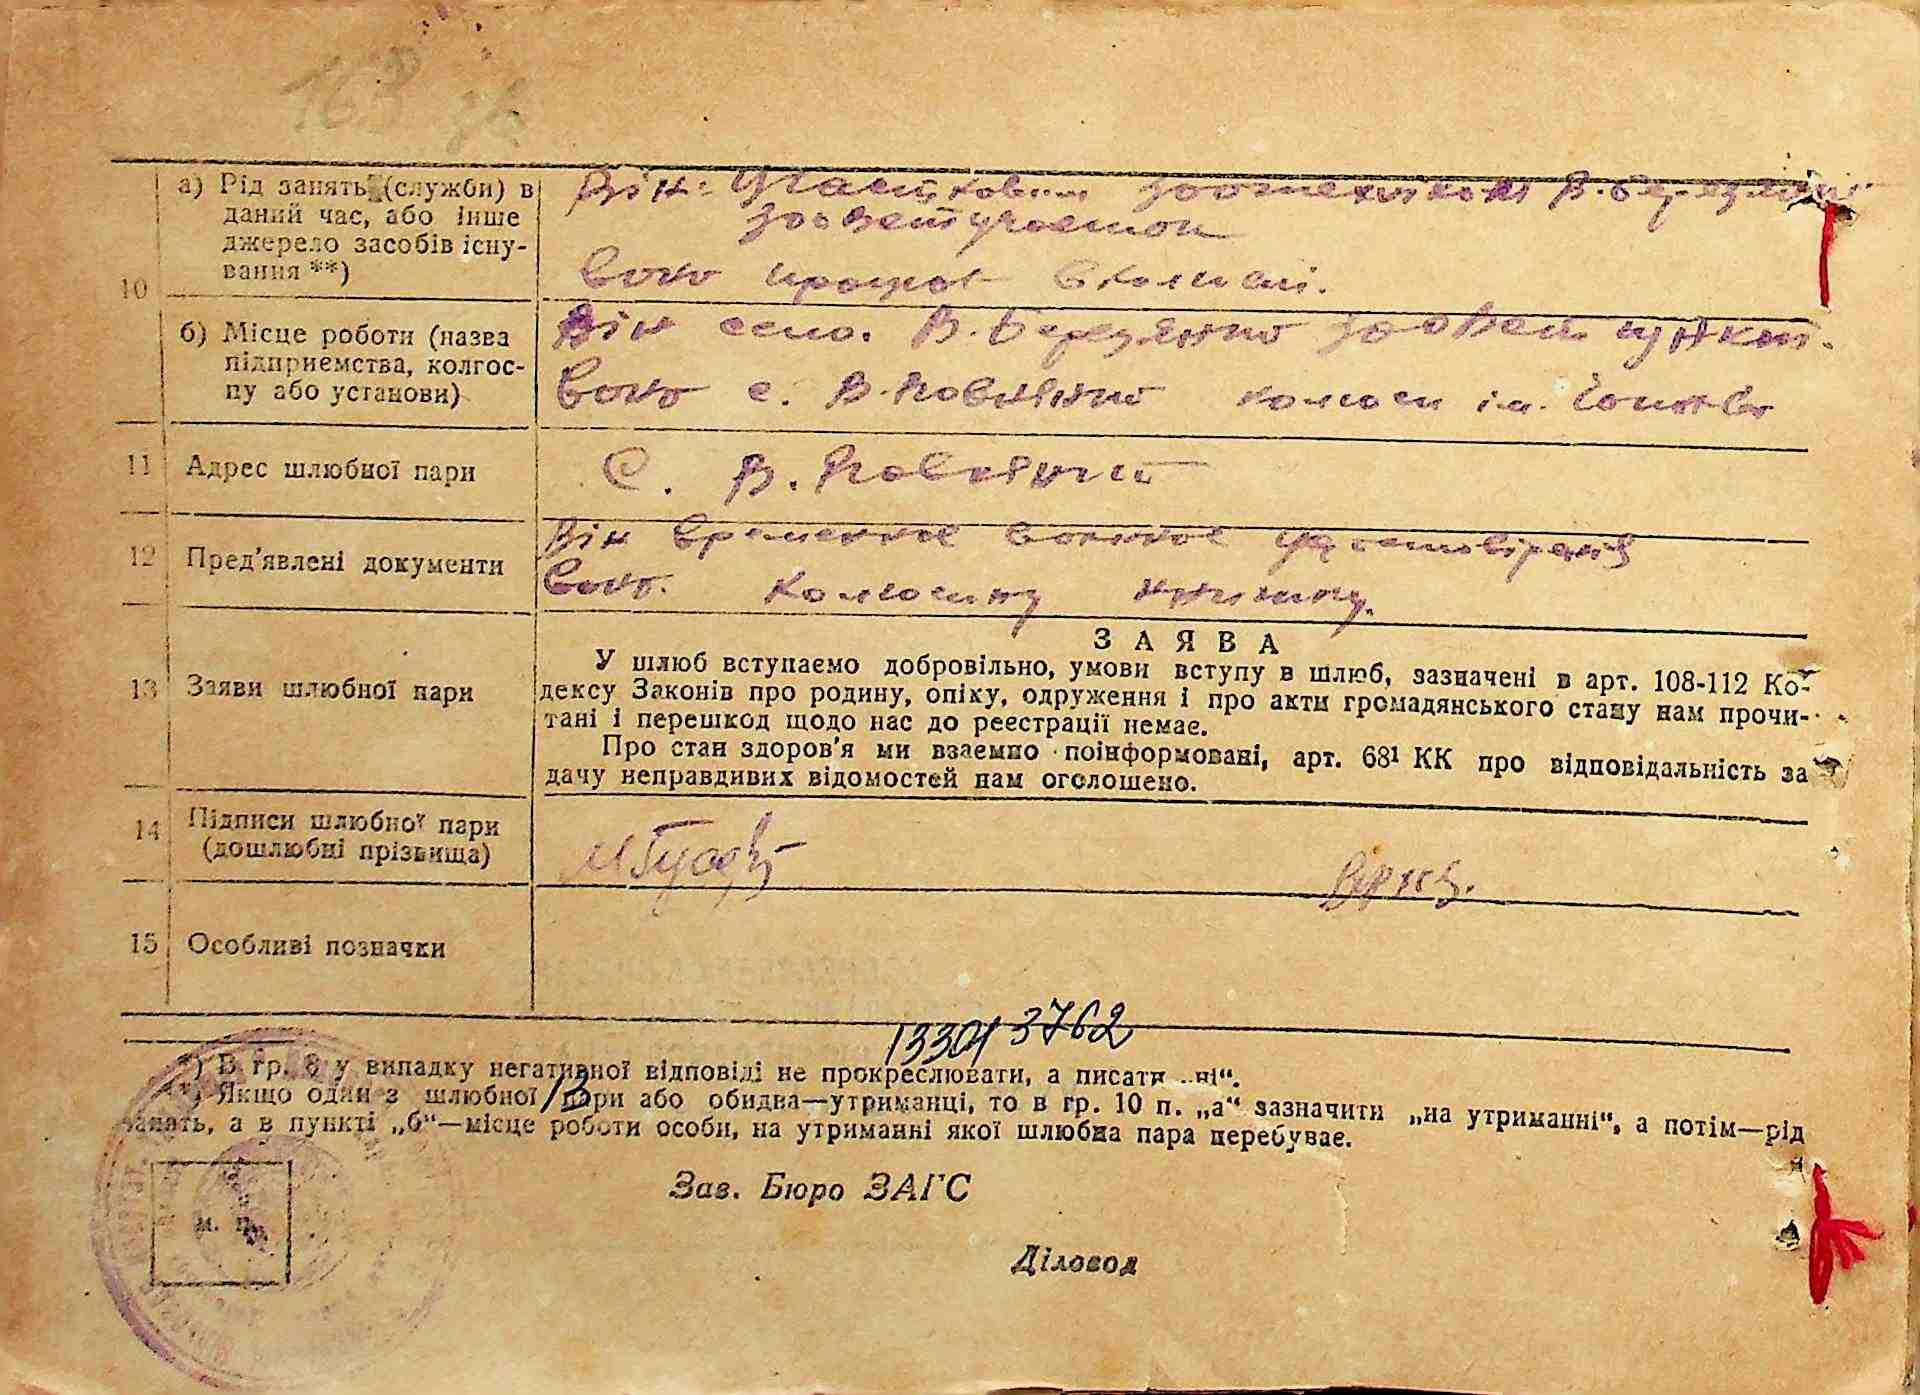 163
10
а) Рід занять (служби) в
даний час, або інше
джерело засобів існу-
вання **)
Він: Участковим зоотехніком В.
зооветучасток
Воно працює в колгоспі.
б) Місце роботи (назва
підприємства, колгос-
пу або установи)
Він село. В. зоовет пункт.
Воно с. В. колгосп ім.
11 Адрес шлюбної пари
С. В.
12 Пред'явлені документи
Він временное воинное
Воно. Колгоспну книжку.
13 Заяви шлюбної пари
ЗАЯВА
У шлюб вступаємо добровільно, умови вступу в шлюб, зазначені в арт. 108-112 Ко-
дексу Законів про родину, опіку, одруження і про акти громадянського стану нам прочи-
тані і перешкод щодо нас до реєстрації немає.
Про стан здоров'я ми взаємно поінформовані, арт. 68¹ КК про відповідальність за
дачу неправдивих відомостей нам оголошено.
14 Підписи шлюбної пари
(дошлюбні прізвища)
15 Особливі позначки
13301 3762
*) В гр. 8 у випадку негативної відповіді не прокреслювати, а писати „ні“.
**) Якщо один з шлюбної пари або обидва—утриманці, то в гр. 10 п. „а“ зазначити „на утриманні“, а потім—рід
занять, а в пункті „б“—місце роботи особи, на утриманні якої шлюбна пара перебуває.
м. п.
Зав. Бюро ЗАГС
Діловод